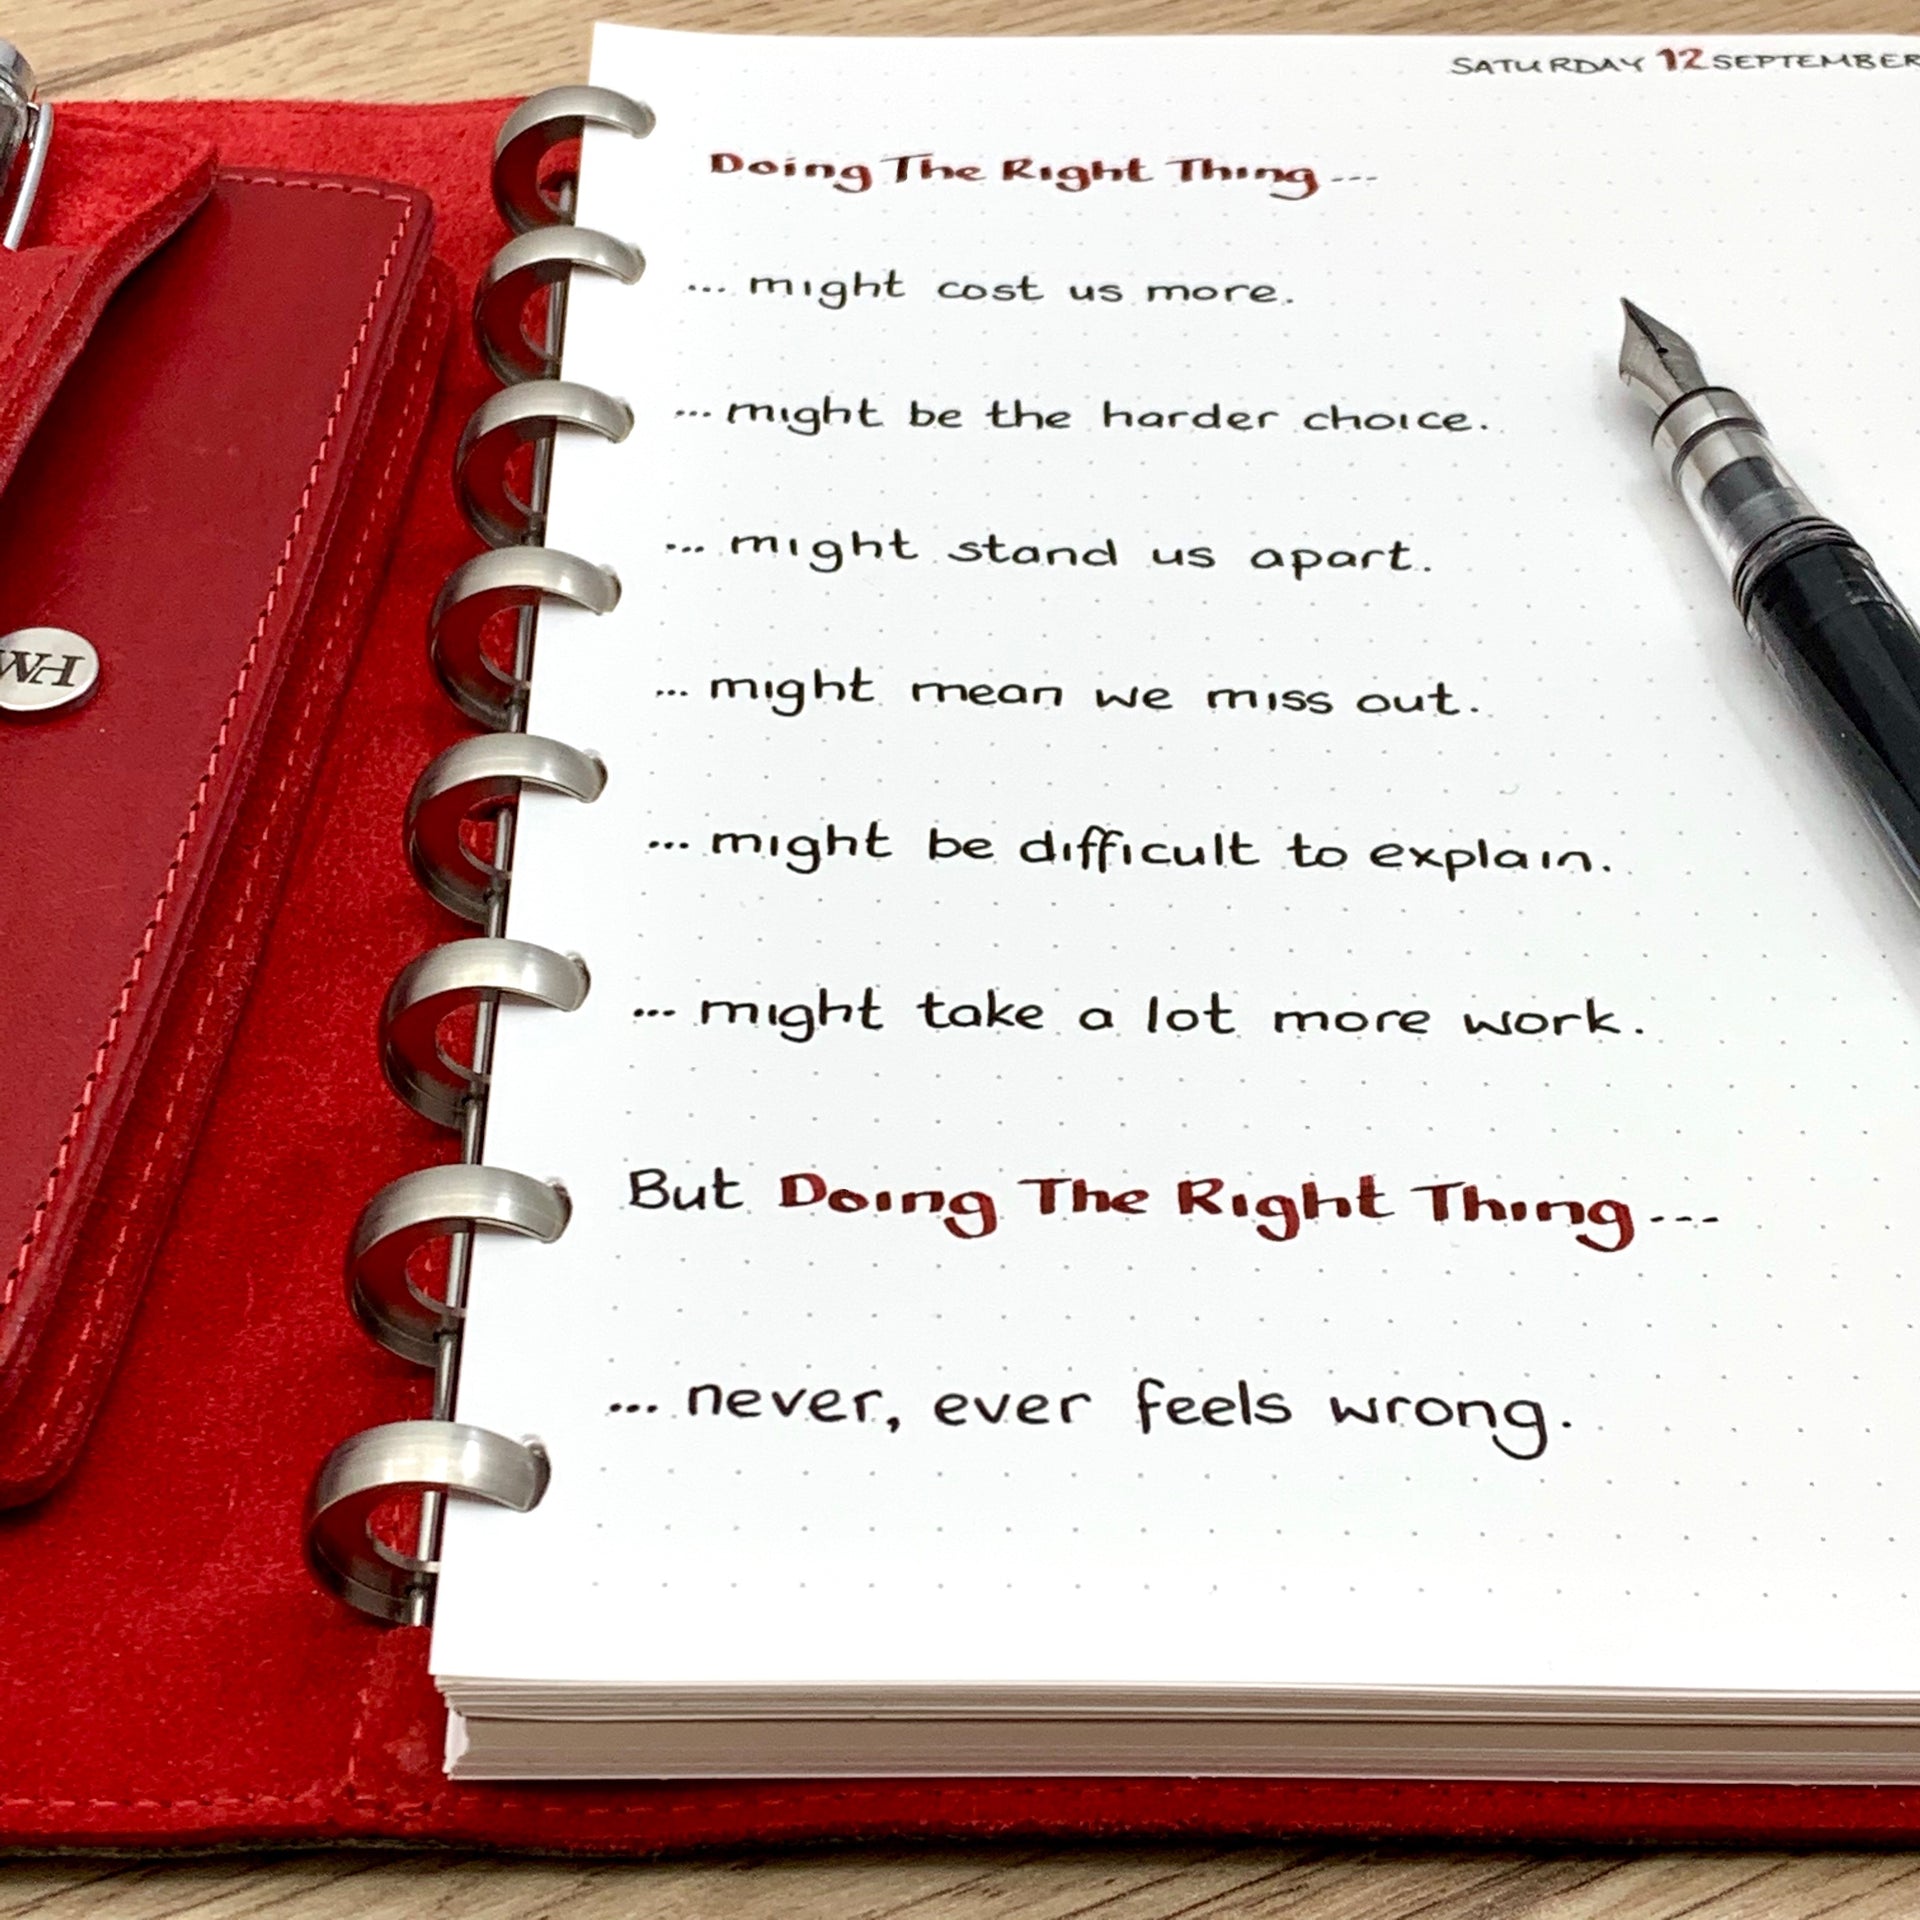 SATURDAY 12 SEPTEMBER
Doing The Right Thing...
... might cost us more.
... might be the harder choice.
... might stand us apart.
... might mean we miss out.
... might be difficult to explain.
... might take a lot more work.
But Doing The Right Thing...
... never, ever feels wrong.
WH